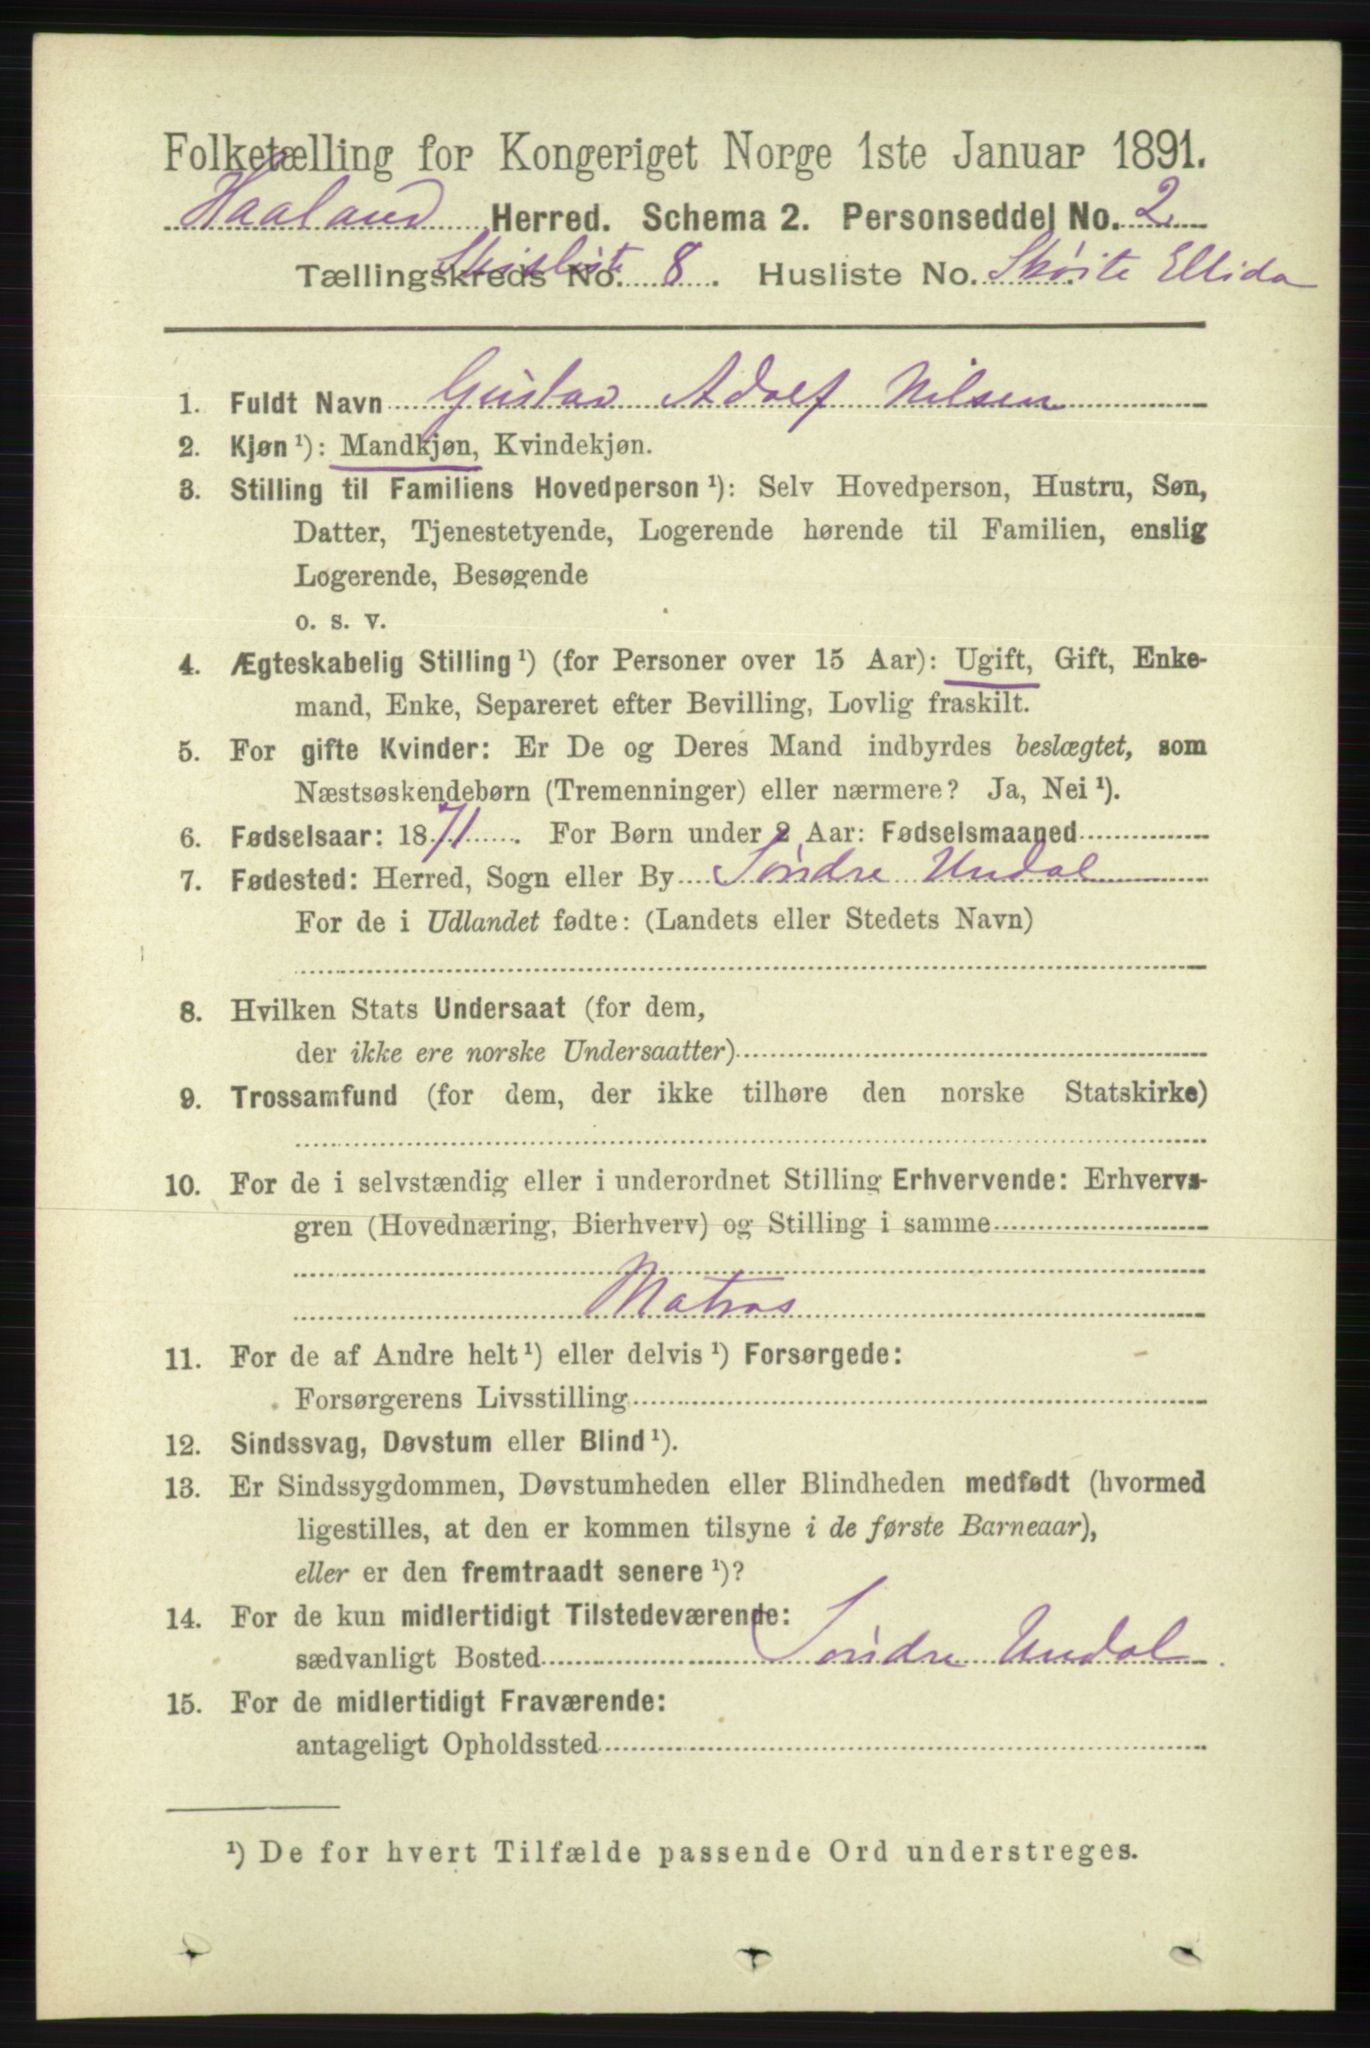 Folketælling for Kongeriget Norge 1ste Januar 1891.
Haaland Herred. Schema 2. Personseddel No. 2
Tællingskreds No. Skibsliste 8. Husliste No. Skøite Ellida
1. Fuldt Navn Gustav Adolf Nilsen
2. Kjøn ¹): Mandkjøn, Kvindekjøn.
3. Stilling til Familiens Hovedperson ¹): Selv Hovedperson, Hustru, Søn,
Datter, Tjenestetyende, Logerende hørende til Familien, enslig
Logerende, Besøgende
o. s. v.
4. Ægteskabelig Stilling ¹) (for Personer over 15 Aar): Ugift, Gift, Enke-
mand, Enke, Separeret efter Bevilling, Lovlig fraskilt.
5. For gifte Kvinder: Er De og Deres Mand indbyrdes beslægtet, som
Næstsøskendebørn (Tremenninger) eller nærmere? Ja, Nei ¹).
6. Fødselsaar: 1871. For Børn under 2 Aar: Fødselsmaaned
7. Fødested: Herred, Sogn eller By Søndre Undal
For de i Udlandet fødte: (Landets eller Stedets Navn)
8. Hvilken Stats Undersaat (for dem,
der ikke ere norske Undersaatter)
9. Trossamfund (for dem, der ikke tilhøre den norske Statskirke)
10. For de i selvstændig eller i underordnet Stilling Erhvervende: Erhvervs-
gren (Hovednæring, Bierhverv) og Stilling i samme
Matros
11. For de af Andre helt ¹) eller delvis ¹) Forsørgede:
Forsørgerens Livsstilling
12. Sindssvag, Døvstum eller Blind ¹).
13. Er Sindssygdommen, Døvstumheden eller Blindheden medfødt (hvormed
ligestilles, at den er kommen tilsyne i de første Barneaar),
eller er den fremtraadt senere ¹)?
14. For de kun midlertidigt Tilstedeværende:
sædvanligt Bosted Søndre Undal
15. For de midlertidigt Fraværende:
antageligt Opholdssted
¹) De for hvert Tilfælde passende Ord understreges.